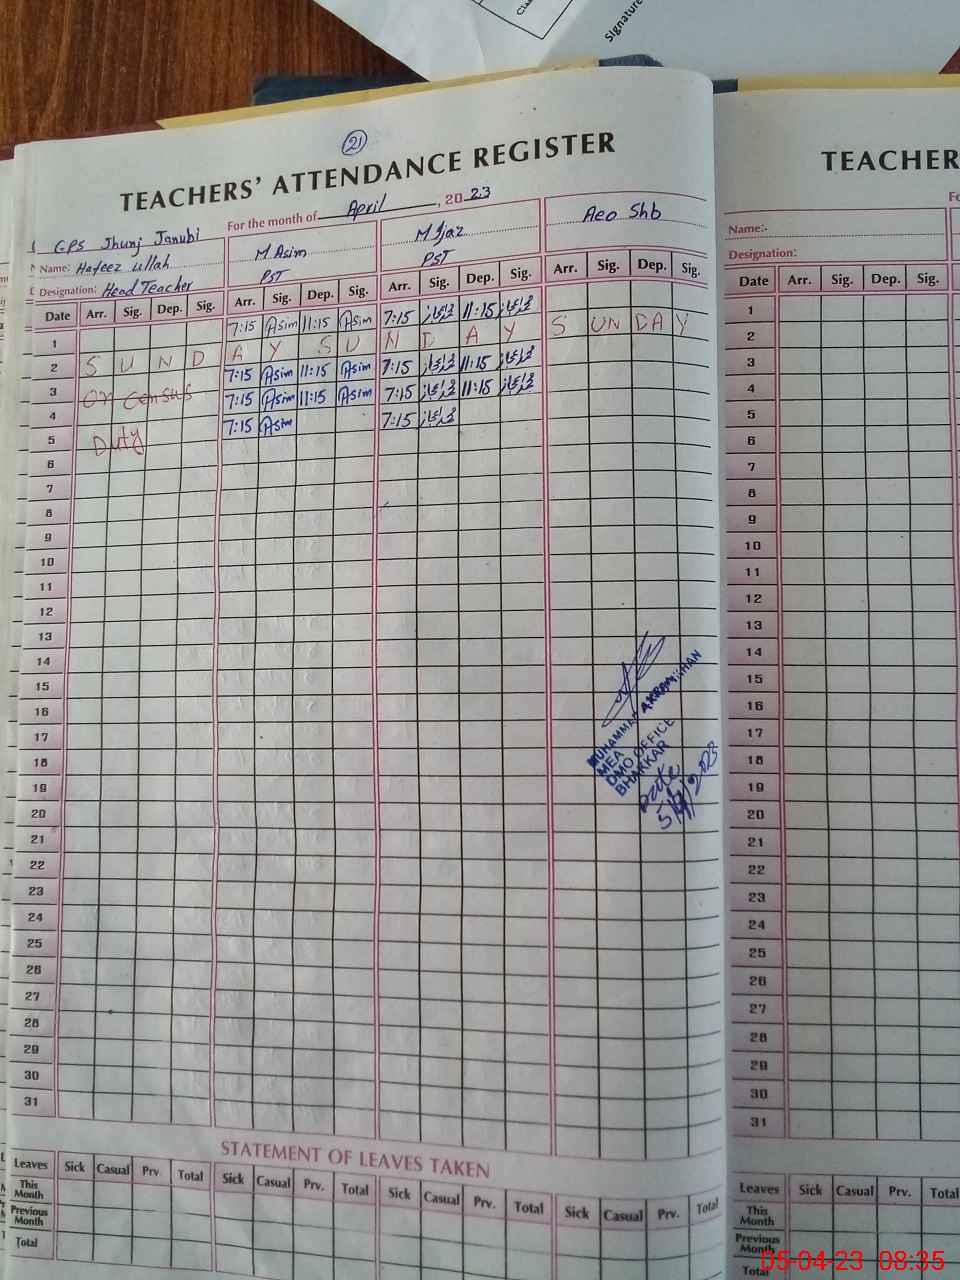 Signature
21
TEACHERS' ATTENDANCE REGISTER
For the month of April, 2023
GPS Jhunj Janubi
Name: Hafeez ullah M Asim M Ijaz Aeo Shb
Designation: Head Teacher PST PST
Date Arr. Sig. Dep. Sig. Arr. Sig. Dep. Sig. Arr. Sig. Dep. Sig. Arr. Sig. Dep. Sig.
1 7:15 Asim 11:15 Asim 7:15 11:15
2 S U N D A Y S U N D A Y S UN DA Y
3 on census 7:15 Asim 11:15 Asim 7:15 11:15
4 7:15 Asim 11:15 Asim 7:15 11:15
5 Duty 7:15 Asim 7:15
6
7
8
9
10
11
12
13
14
15
16
17
18
19
20
21
22
23
24
25
26
27
28
29
30
31
MUHAMMAD AKRAM KHAN
MEA
DMO OFFICE
BHAKKAR
Date
5/4/2023
STATEMENT OF LEAVES TAKEN
Leaves Sick Casual Prv. Total Sick Casual Prv. Total Sick Casual Prv. Total Sick Casual Prv. Total
This Month
Previous Month
Total
TEACHER
Name:-
Designation:
Date Arr. Sig. Dep. Sig.
1
2
3
4
5
6
7
8
9
10
11
12
13
14
15
16
17
18
19
20
21
22
23
24
25
26
27
28
29
30
31
Leaves Sick Casual Prv. Total
This Month
Previous Month
Total
05-04-23 08:35